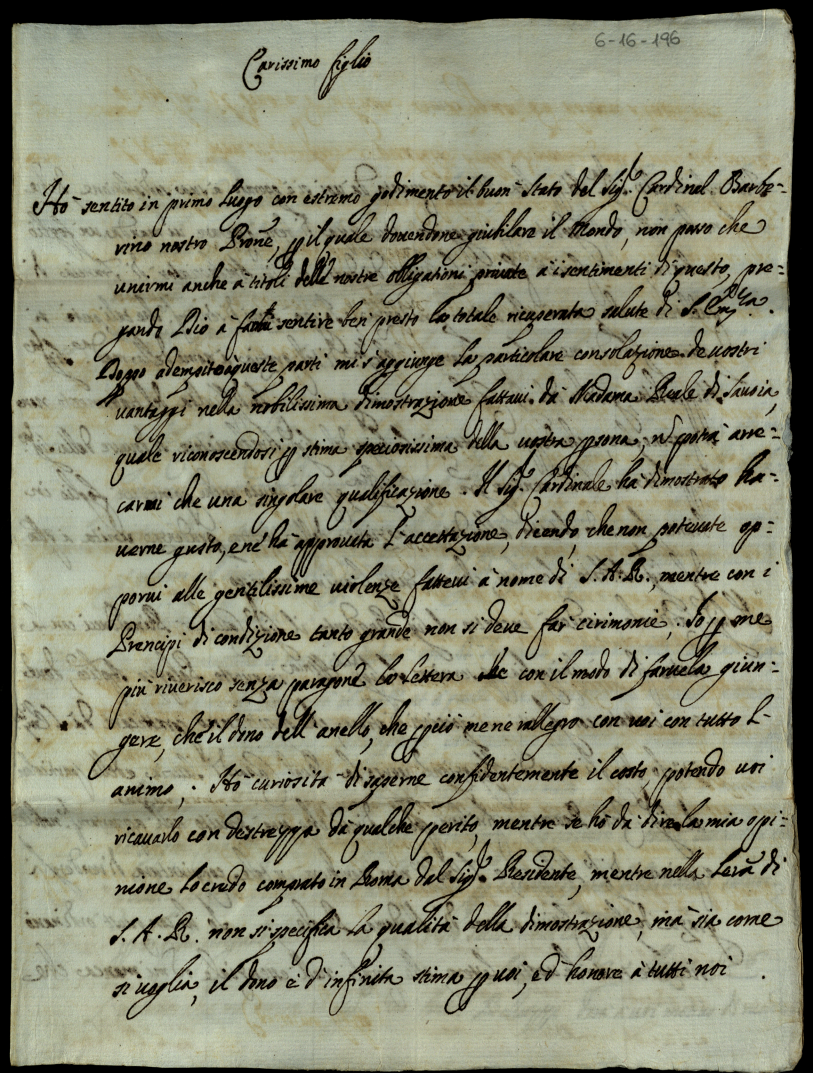 6-16-196
Carissimo figlio
Hò sentito in primo luogo con estremo godimento il buon stato del Sig.r Cardinal Barbe-
rino nostro Prone, p il quale dovendone giubilare il Mondo, non posso che
unirmi anche à titoli delle nostre obligationi private à i sentimenti di questo, pre-
gando Dio à farmi sentire ben presto la totale ricuperata salute di S. Em.za.
Doppo adempito à queste parti mi s'aggiunge la particolare consolazione de vostri
vantaggi nella nobilissima dimostrazione fattavi da Madama Reale di Savoia,
quale riconoscendosi p stima speciosissima della vostra psona, nò potrà arre-
carmi che una singolare qualificazione. Il Sig.r Cardinale hà dimostrato ha-
verne gusto, e nè hà approvata l'accettazione, dicendo, che non potevate op-
porvi alle gentilissime violenze fattevi à nome di S. A. R., mentre con i
Prencipi di condizione tanto grande non si deve far cirimonie. Io p me
più riverisco senza paragone la lettera con il modo di farvela giun-
gere, che il dono dell'anello, che pciò me ne rallegro con voi con tutto l'
animo. Hò curiosità di saperne confidentemente il costo, potendo voi
ricavarlo con destrezza dà qualche perito, mentre se hò dà dire la mia opi-
nione lo credo comprato in Roma dal Sig.r Residente, mentre nella lera di
S. A. R. non si specifica la qualità della dimostrazione, mà sia come
si voglia, il dono è d'infinita stima p voi, e d'honore à tutti noi.